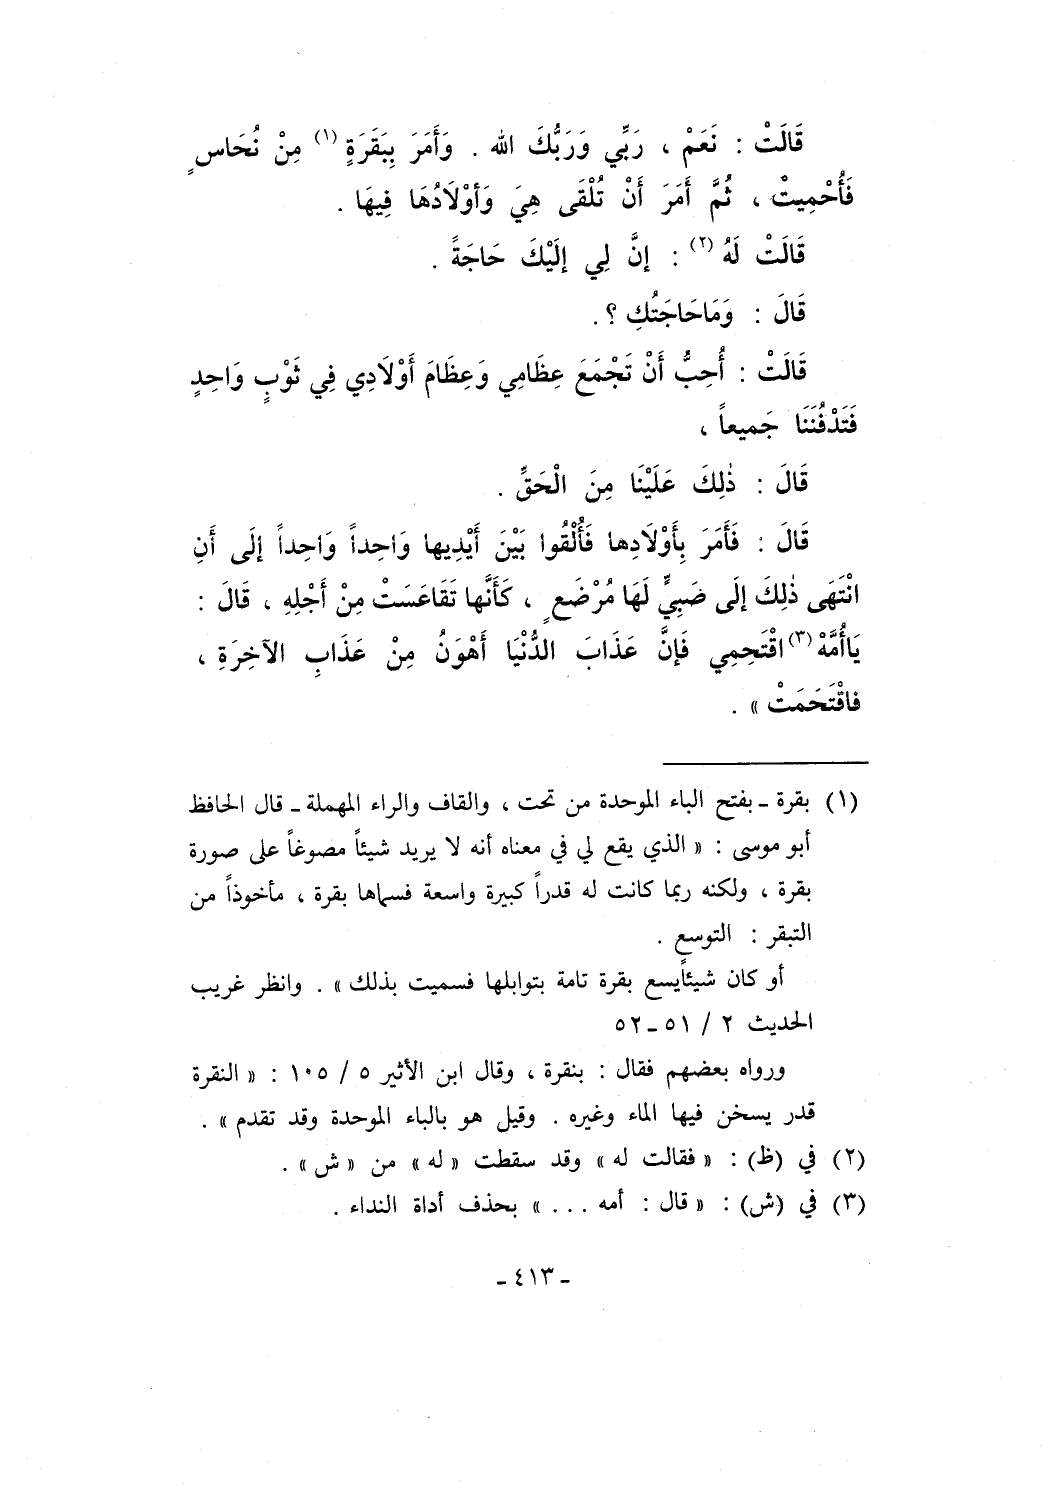 قَالَتْ : نَعَمْ ، رَبِّي وَرَبُّكَ الله . وَأَمَرَ بِبَقَرَةٍ (١) مِنْ نُحَاسٍ
فَأُحْمِيتْ ، ثُمَّ أَمَرَ أَنْ تُلْقَى هِيَ وَأوْلَادُهَا فِيهَا .
قَالَتْ لَهُ (٢) : إنَّ لِي إلَيْكَ حَاجَةً .
قَالَ : وَمَاحَاجَتُكِ ؟ .
قَالَتْ : أُحِبُّ أَنْ تَجْمَعَ عِظَامِي وَعِظَامَ أَوْلَادِي فِي ثَوْبٍ وَاحِدٍ
فَتَدْفُنَنَا جَمِيعاً ،
قَالَ : ذٰلِكَ عَلَيْنَا مِنَ الْحَقِّ .
قَالَ : فَأَمَرَ بِأَوْلَادِها فَأُلْقُوا بَيْنَ أَيْدِيها وَاحِداً وَاحِداً إلَى أَنِ
انْتَهَى ذٰلِكَ إلَى صَبِيٍّ لَهَا مُرْضَعٍ ، كَأَنَّها تَقَاعَسَتْ مِنْ أَجْلِهِ ، قَالَ :
يَاأُمَّهْ (٣) اقْتَحِمِي فَإنَّ عَذَابَ الدُّنْيَا أَهْوَنُ مِنْ عَذَابِ الآخِرَةِ ،
فاقْتَحَمَتْ » .
(١) بقرة ـ بفتح الباء الموحدة من تحت ، والقاف والراء المهملة ـ قال الحافظ
أبو موسى : « الذي يقع لي في معناه أنه لا يريد شيئاً مصوغاً على صورة
بقرة ، ولكنه ربما كانت له قدراً كبيرة واسعة فسماها بقرة ، مأخوذاً من
التبقر : التوسع .
أو كان شيئاًيسع بقرة تامة بتوابلها فسميت بذلك » . وانظر غريب
الحديث ٢ / ٥١ ـ ٥٢
ورواه بعضهم فقال : بنقرة ، وقال ابن الأثير ٥ / ١٠٥ : « النقرة
قدر يسخن فيها الماء وغيره . وقيل هو بالباء الموحدة وقد تقدم » .
(٢) في (ظ) : « فقالت له » وقد سقطت « له » من « ش » .
(٣) في (ش) : « قال : أمه . . . » بحذف أداة النداء .
- ٤١٣ -